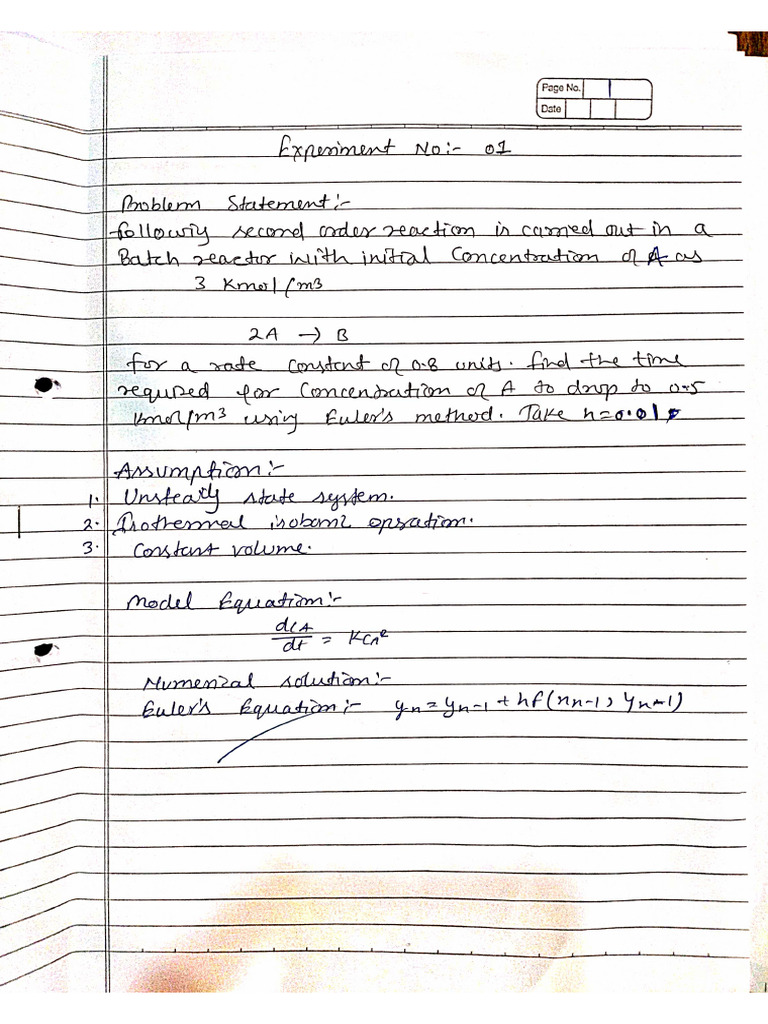 Page No. 1
Date
Experiment No:- 01
Problem Statement:-
following second order reaction is carried out in a
Batch reactor with initial Concentration of A as
3 Kmol/m3
2A → B
for a rate constant of 0.8 units. find the time
required for Concentration of A to drop to 0.5
Kmol/m3 using Euler's method. Take h=0.01
Assumption:-
1. Unsteady state system.
2. Isothermal isobaric opration.
3. Constant volume.
Model Equation:-
dCA/dt = KCA²
Numerical solution:-
Euler's Equation:- yn = yn-1 + hf(xn-1, yn-1)